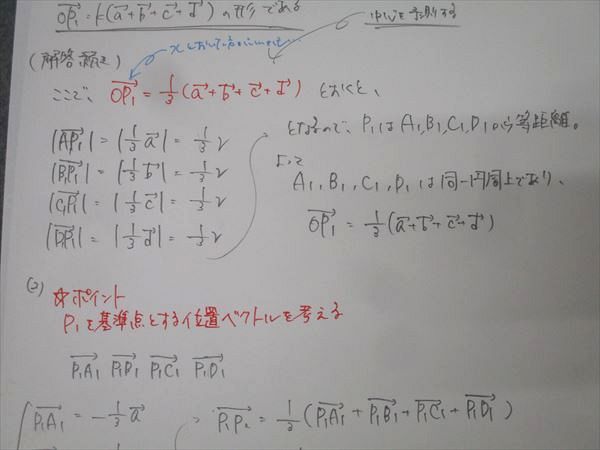 OP₁ = k(a+b+c+d) の形である
(解答続き)
ここで、OP₁ = 1/3(a+b+c+d) とおくと、
|A₁P₁| = |1/3 a| = 1/3 r
|B₁P₁| = |1/3 b| = 1/3 r
|C₁P₁| = |1/3 c| = 1/3 r
|D₁P₁| = |1/3 d| = 1/3 r
となるので、P₁はA₁,B₁,C₁,D₁から等距離。
よって
A₁, B₁, C₁, D₁ は同一円周上であり、
OP₁ = 1/3(a+b+c+d)
(2)
☆ポイント
P₁を基準点とする位置ベクトルを考える
P₁A₁ P₁B₁ P₁C₁ P₁D₁
P₁A₁ = -1/3 a
P₁P₂ = 1/3(P₁A₁ + P₁B₁ + P₁C₁ + P₁D₁)